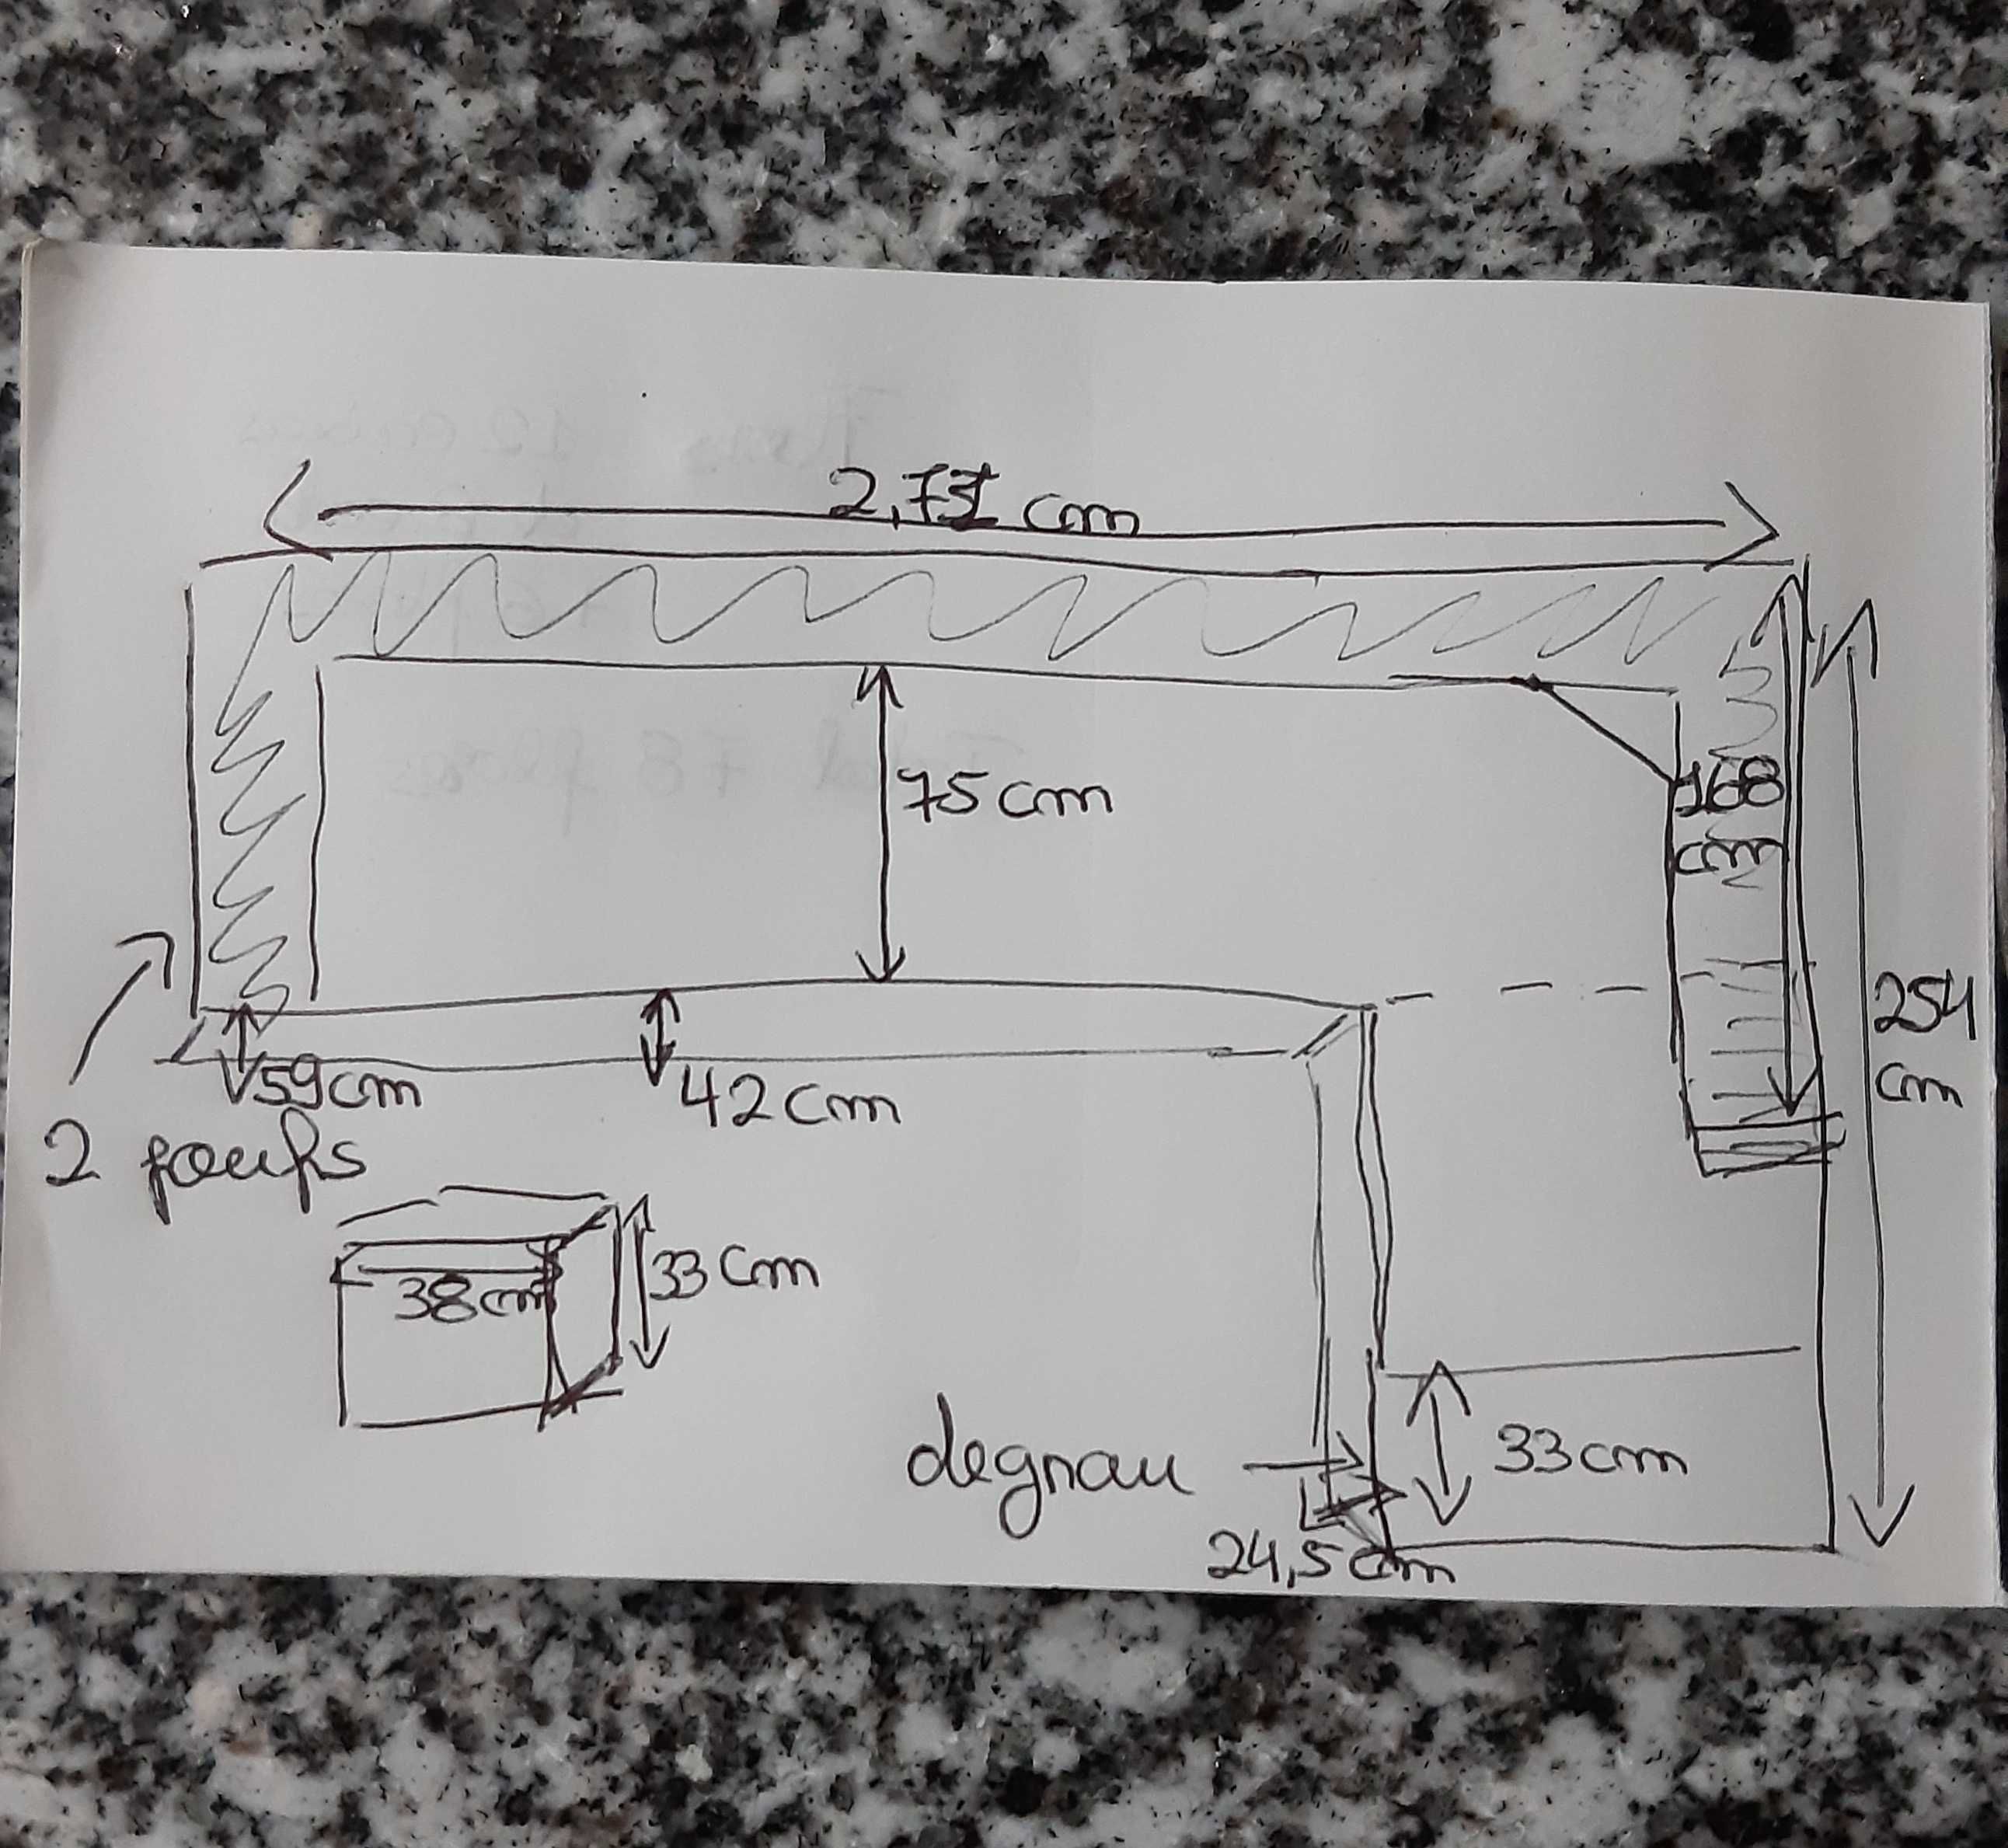 75 cm
168
cm
254
cm
59cm
42cm
2 poufs
33 cm
38cm
degrau
33cm
24,5cm